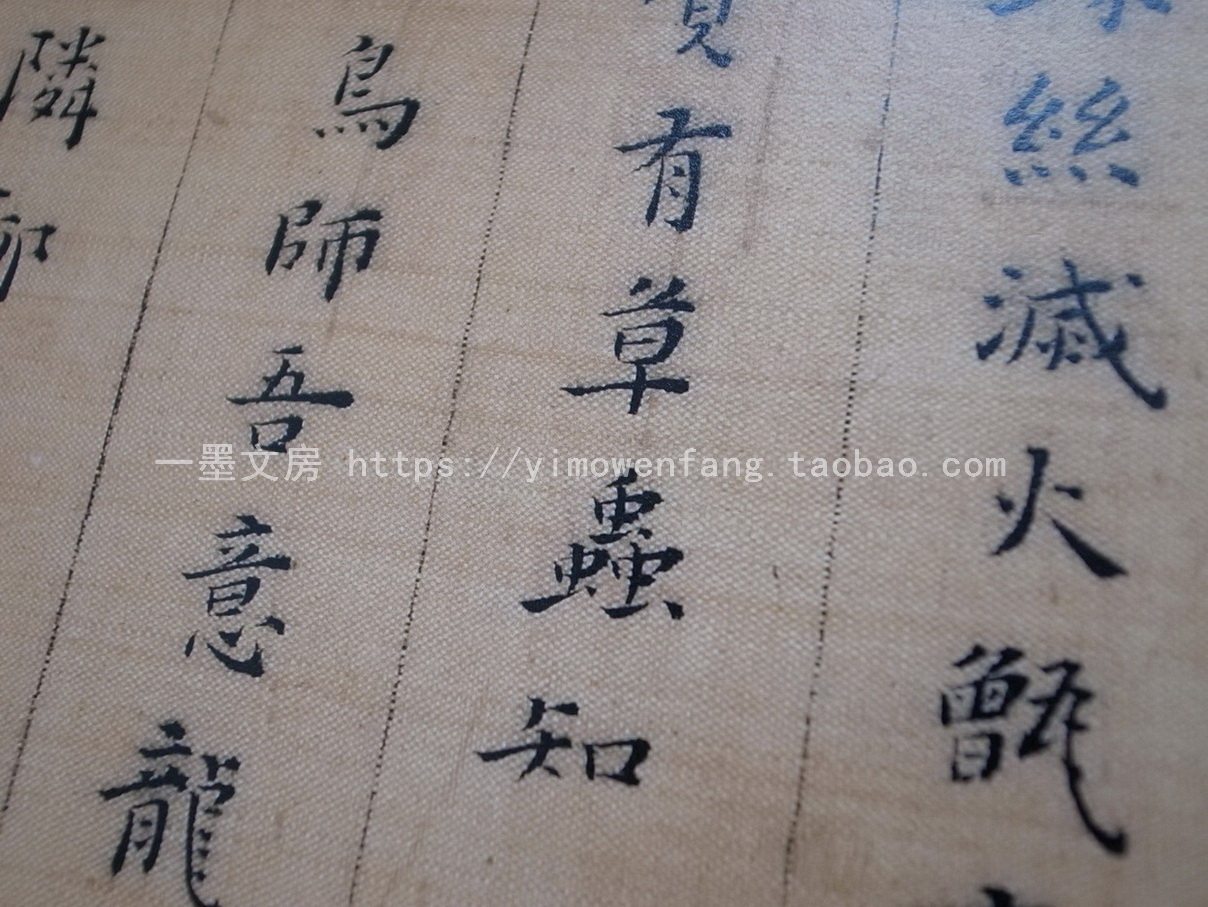 絲滅火甑
有草蟲知
鳥師吾意龍
隣
一墨文房 https://yimowenfang.taobao.com